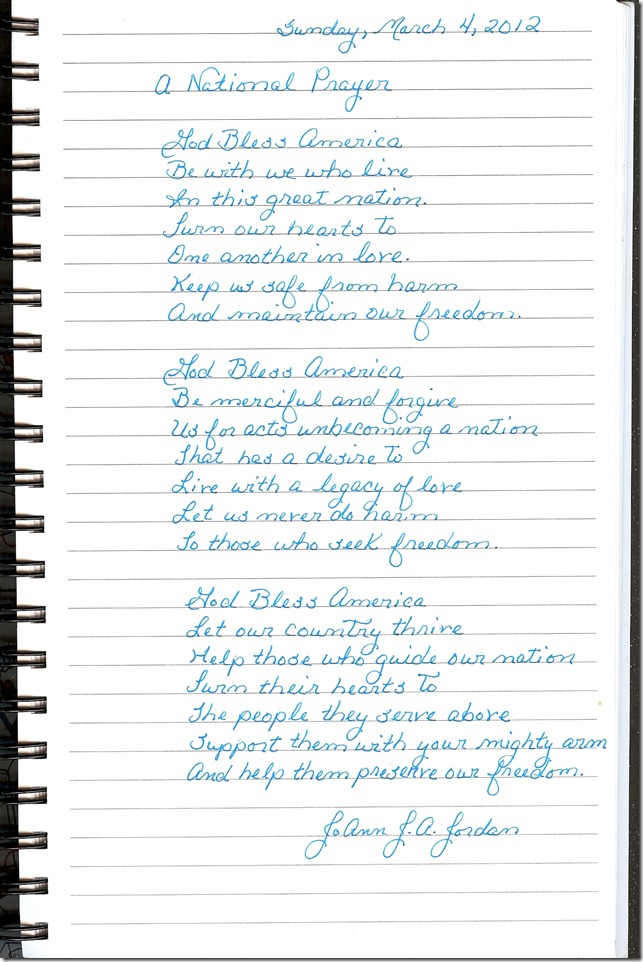 Sunday, March 4, 2012
A National Prayer
God Bless America
Be with we who live
In this great nation.
Turn our hearts to
One another in love.
Keep us safe from harm
And maintain our freedom.
God Bless America
Be merciful and forgive
Us for acts unbecoming a nation
That has a desire to
Live with a legacy of love
Let us never do harm
To those who seek freedom.
God Bless America
Let our country thrive
Help those who guide our nation
Turn their hearts to
The people they serve above
Support them with your mighty arm
And help them preserve our freedom.
JoAnn J.A. Jordan